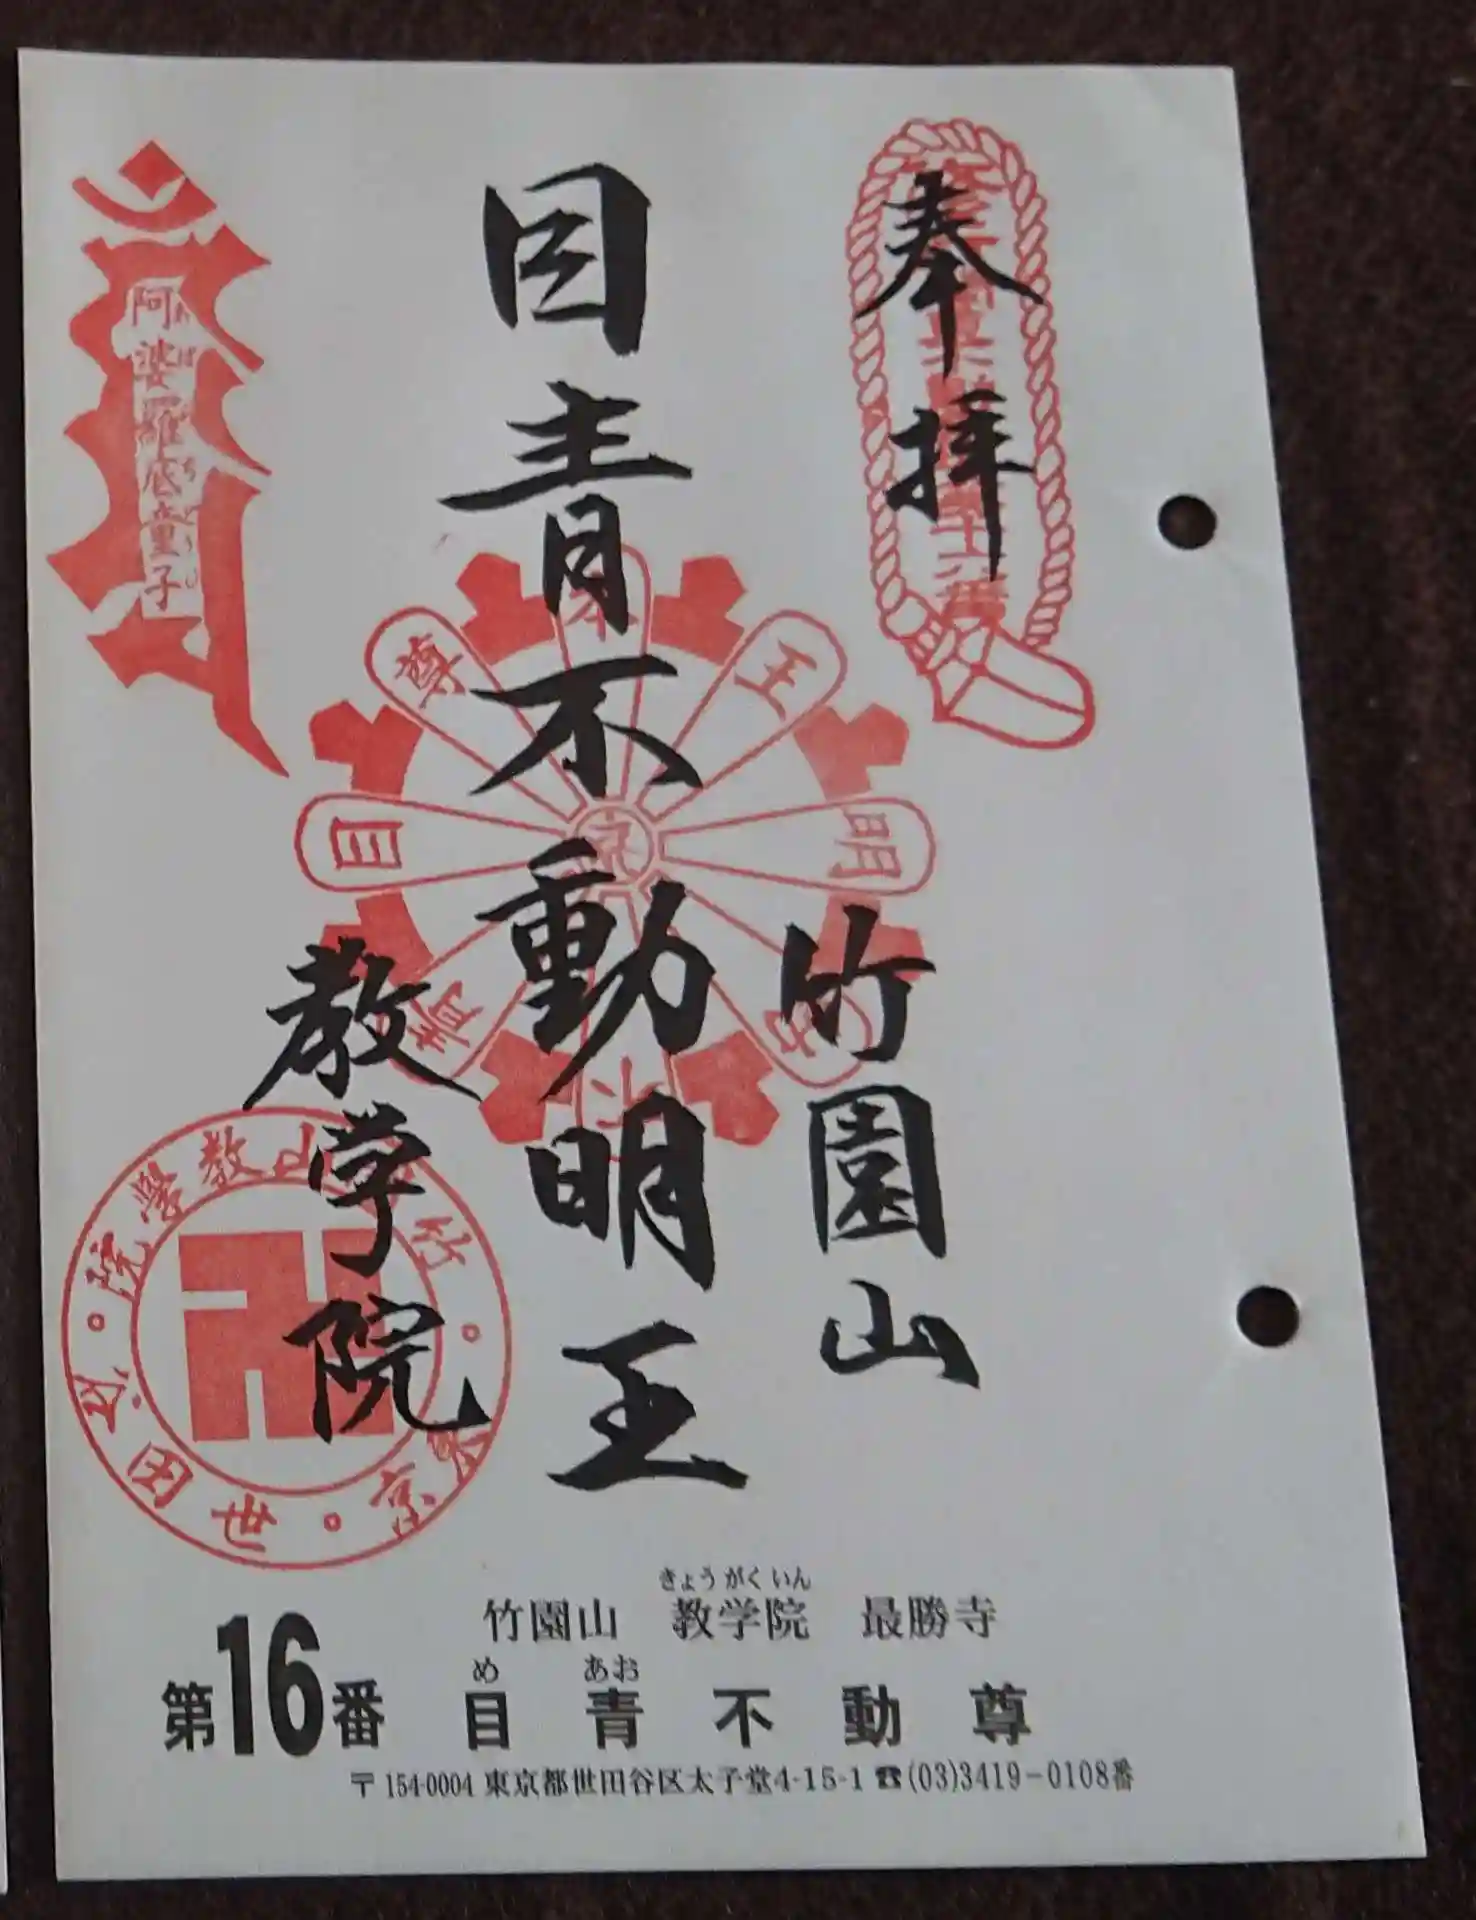 奉拝
竹園山
目青不動明王
教学院
阿婆羅底童子
尊
王
明
目
青
竹 山教學院
東京
世田谷
きょうがくいん
竹園山 教学院 最勝寺
め あお
第16番 目青不動尊
〒154-0004 東京都世田谷区太子堂4-15-1 ☎(03)3419-0108番